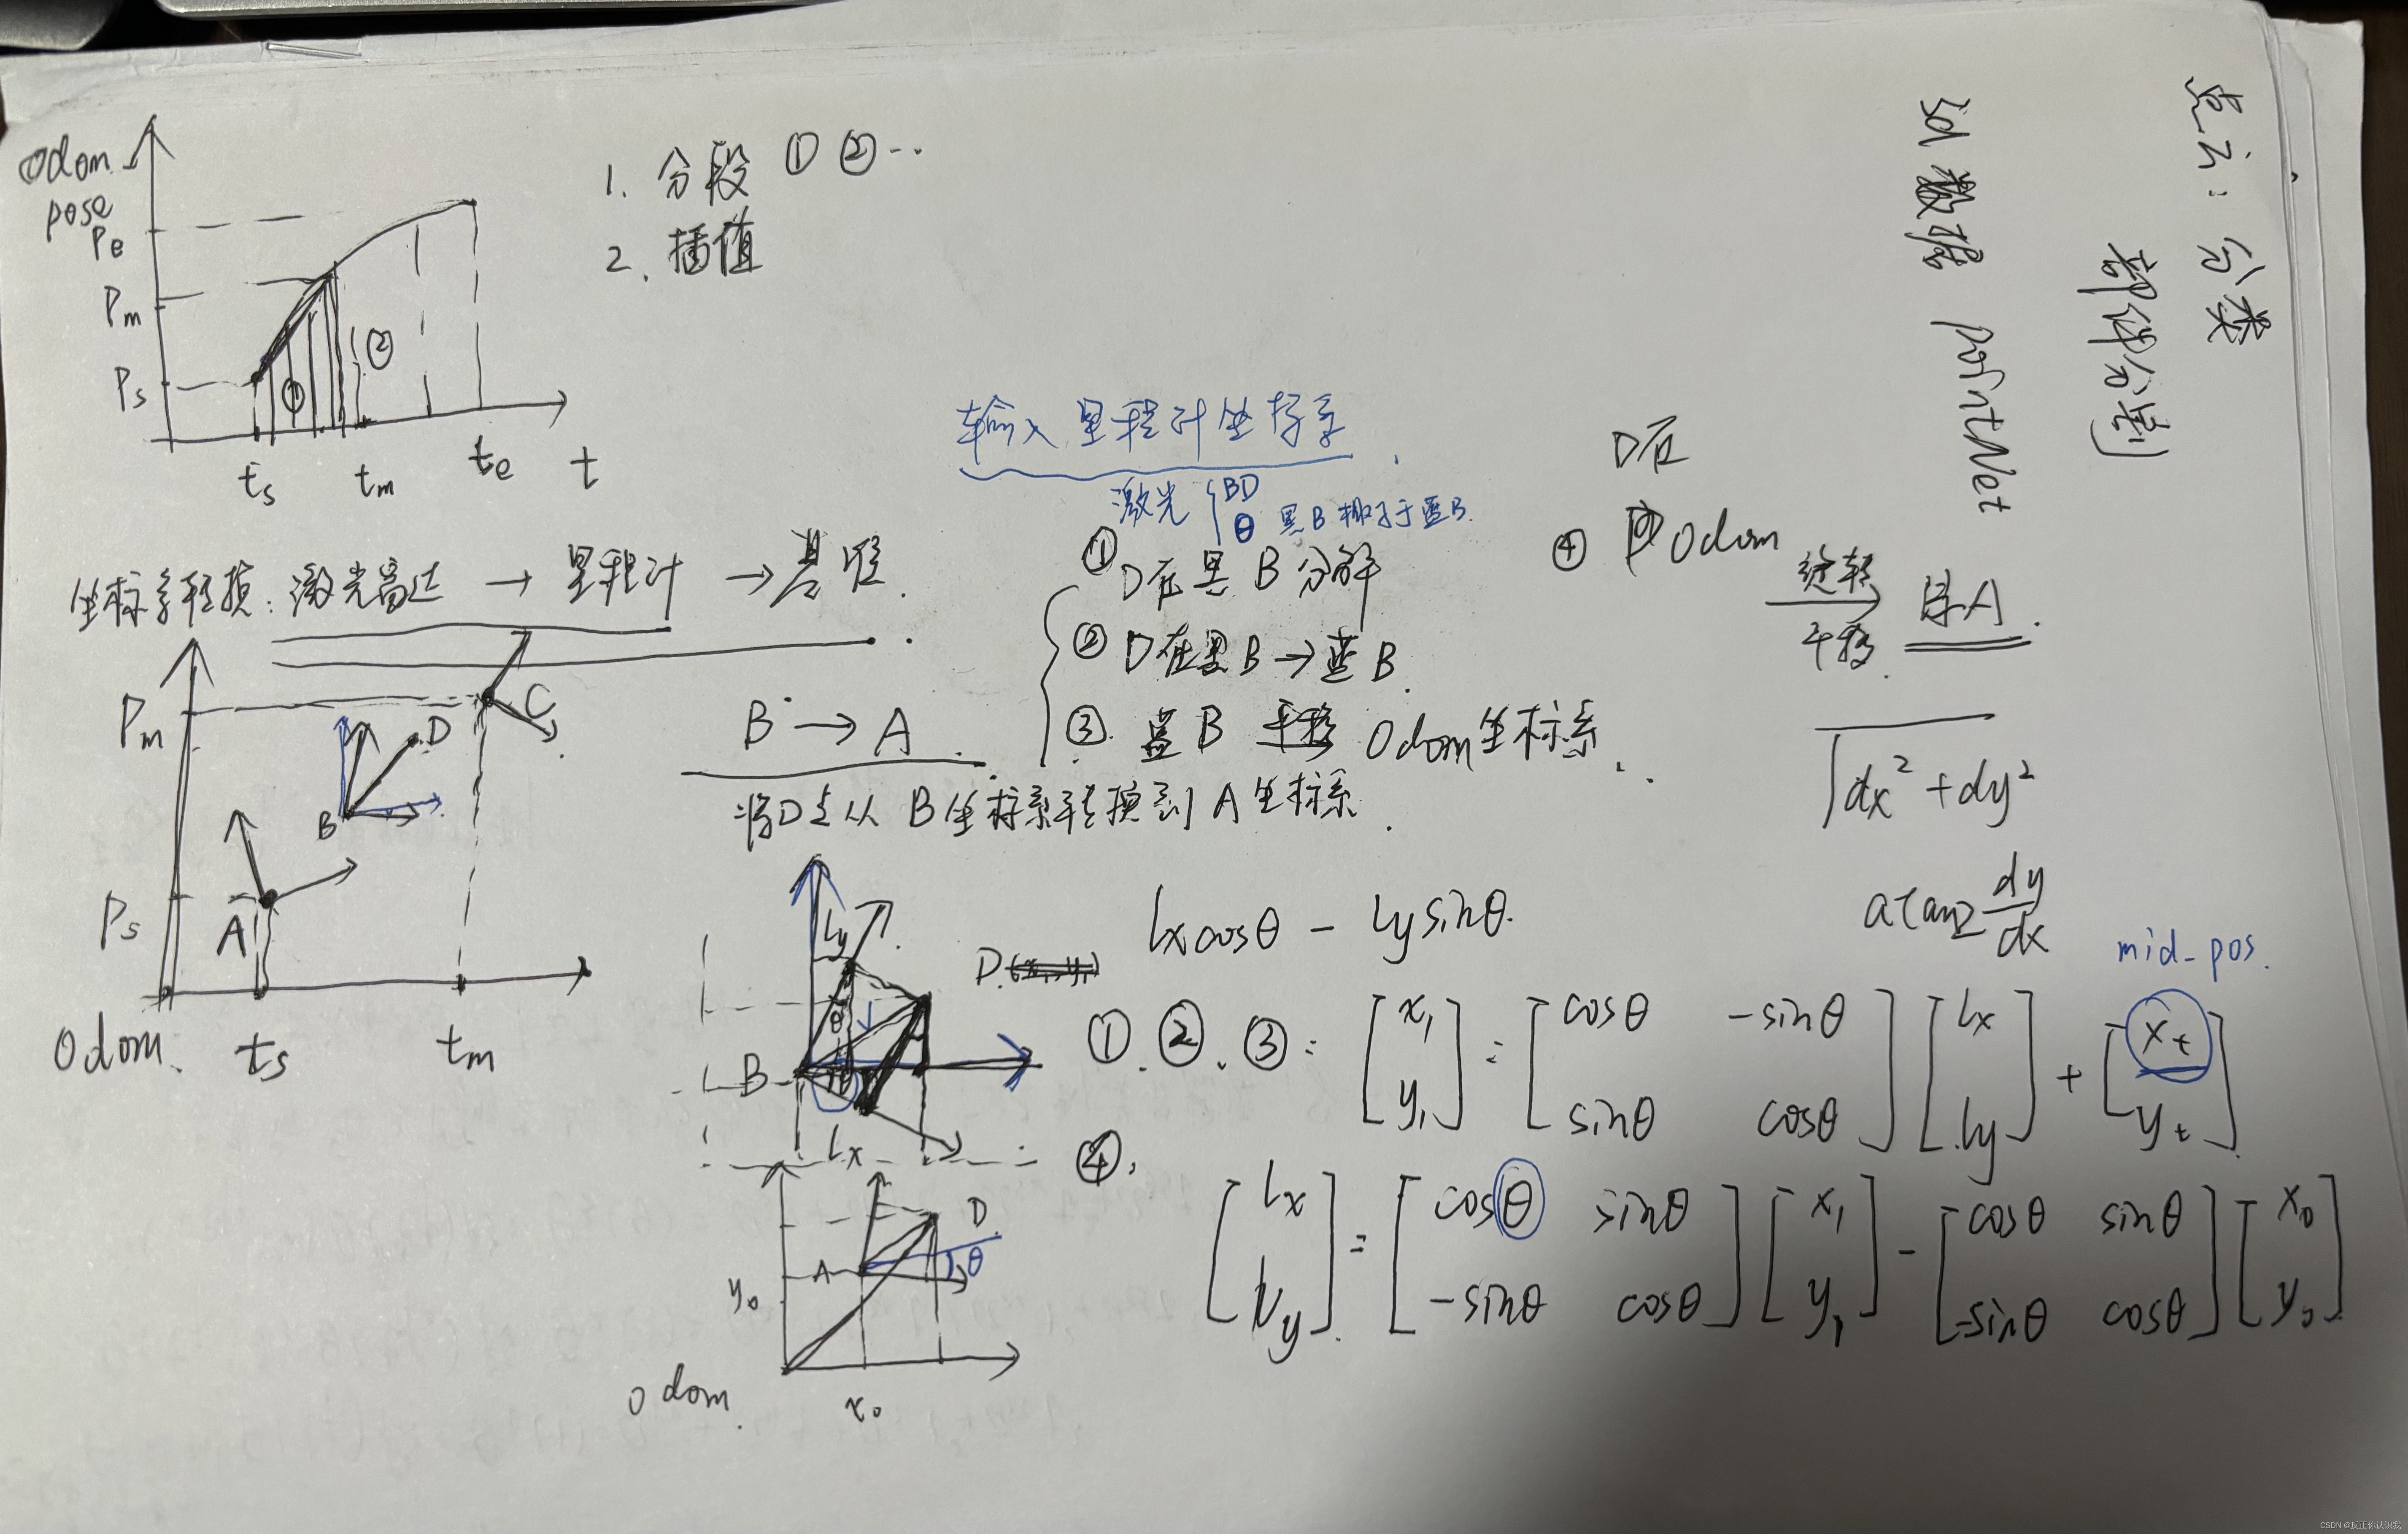 odom pose
Pe
Pm
Ps
① ②
ts tm te t
1. 分段 ① ② ··
2. 插值
坐标系转换: 激光雷达 → 里程计 → 基准.
Pm
Ps
A B C D
odom. ts tm
输入里程计坐标系.
激光 { BD
θ 黑B相对于蓝B.
① D在黑B分解
② D在黑B → 蓝B.
③. 蓝B 平移 odom坐标系.
B → A.
将D点从B坐标系转换到A坐标系.
D在
④ odom 旋转 平移. → A.
√dx² + dy²
atan2 dy/dx
mid_pos.
lx cosθ - ly sinθ.
D. (x₁, y₁)
ly
θ
B
θ
lx
①.②.③: [x₁ y₁] = [cosθ -sinθ sinθ cosθ] [lx ly] + [xt yt]
④. [lx ly] = [cosθ sinθ -sinθ cosθ] [x₁ y₁] - [cosθ sinθ -sinθ cosθ] [x₀ y₀]
D
A θ
y₀
odom. x₀
点云: 分类
部件分割
3d数据 pointNet
CSDN @反正你认识我